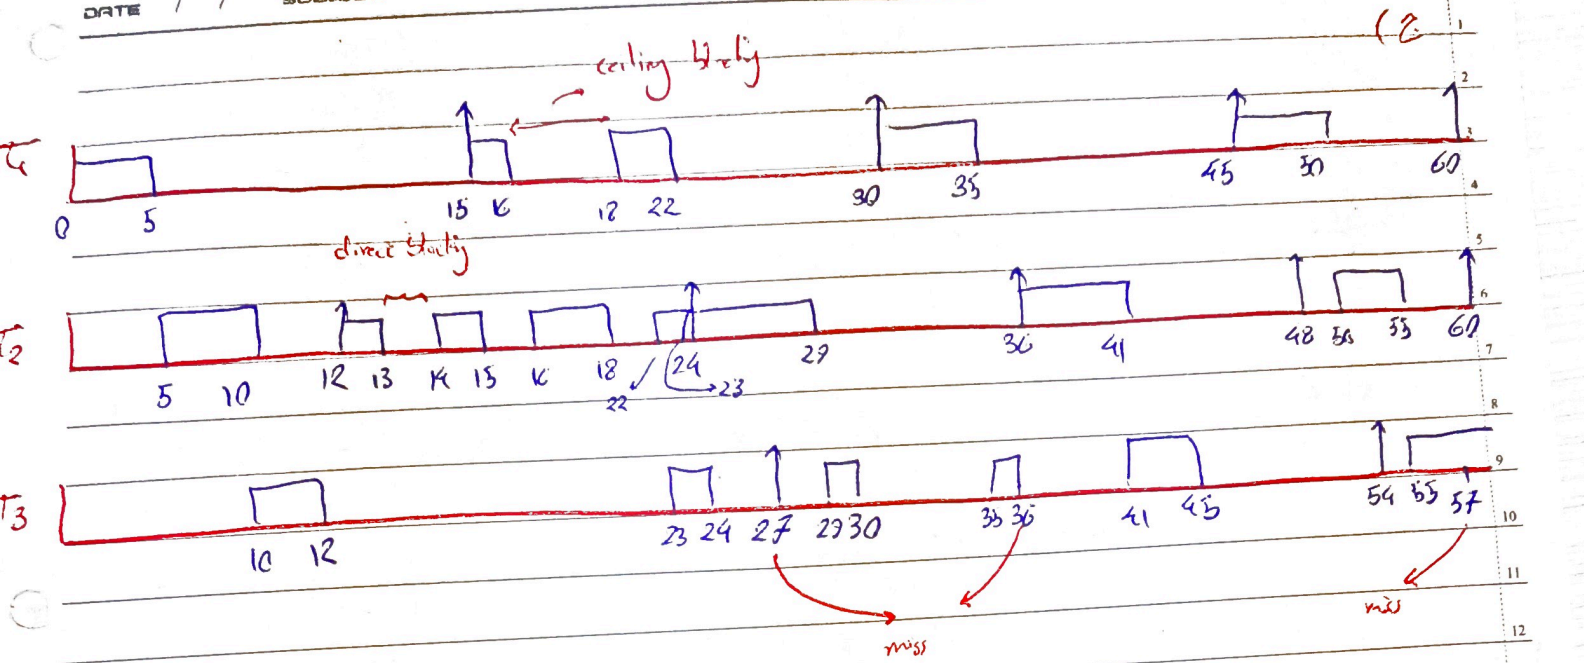 DATE / /
(2
1
ceiling blocking
2
3
T1
0 5 15 16 18 22 30 35 45 50 60
4
direct blocking
5
6
T2
5 10 12 13 14 15 16 18 22 24 23 29 36 41 48 50 55 60
7
8
9
T3
10 12 23 24 27 29 30 35 36 41 45 54 55 57
10
11
miss
miss
12